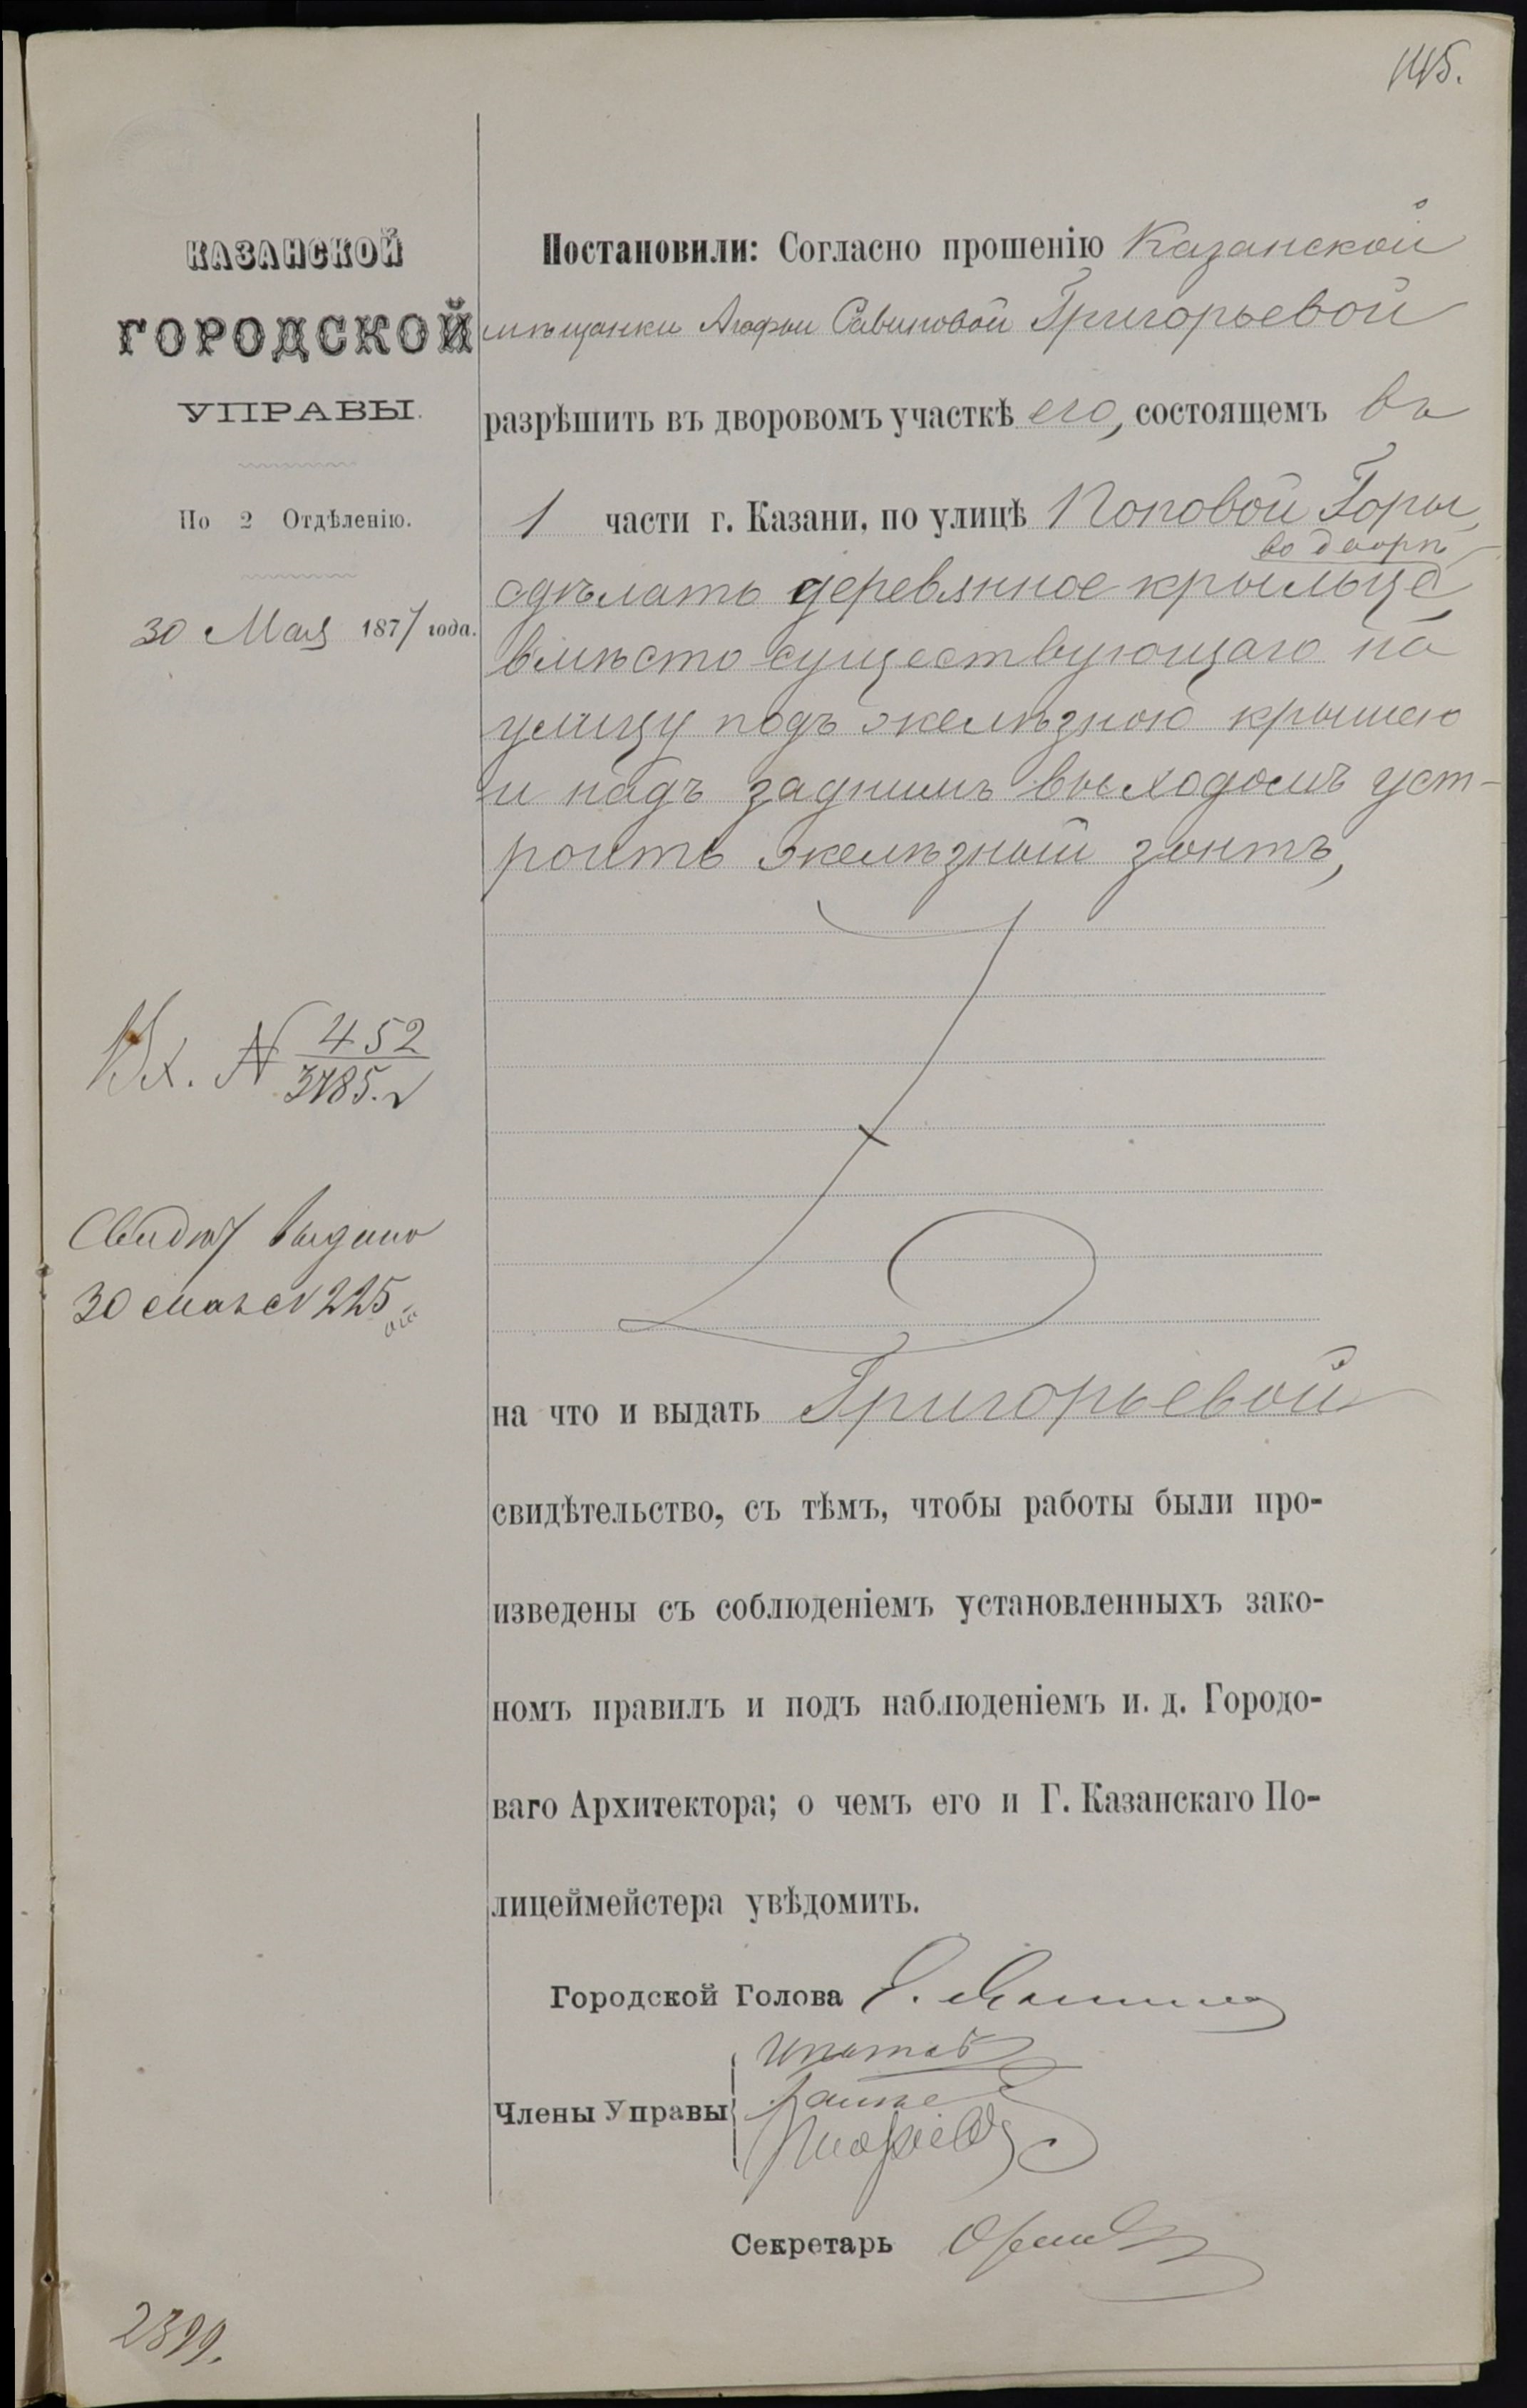 145.
КАЗАНСКОЙ
ГОРОДСКОЙ
УПРАВЫ.
По 2 Отдѣленію.
30 Мая 1877 года.
Вх. № 452
3785.
Свидѣт выдано
30 мая № 225
Постановили: Согласно прошенію Казанской
мѣщанки Агафьи Савиновой Григорьевой
разрѣшить въ дворовомъ участкѣ его, состоящемъ въ
1 части г. Казани, по улицѣ Поповой Горы,
во дворѣ
сдѣлать деревянное крыльце
вмѣсто существующаго на
улицу подъ желѣзною крышею
и надъ заднимъ выходомъ уст-
роить желѣзный зонтъ,
на что и выдать Григорьевой
свидѣтельство, съ тѣмъ, чтобы работы были про-
изведены съ соблюденіемъ установленныхъ зако-
номъ правилъ и подъ наблюденіемъ и. д. Городо-
ваго Архитектора; о чемъ его и Г. Казанскаго По-
лицеймейстера увѣдомить.
Городской Голова
Члены Управы
Секретарь
2399.